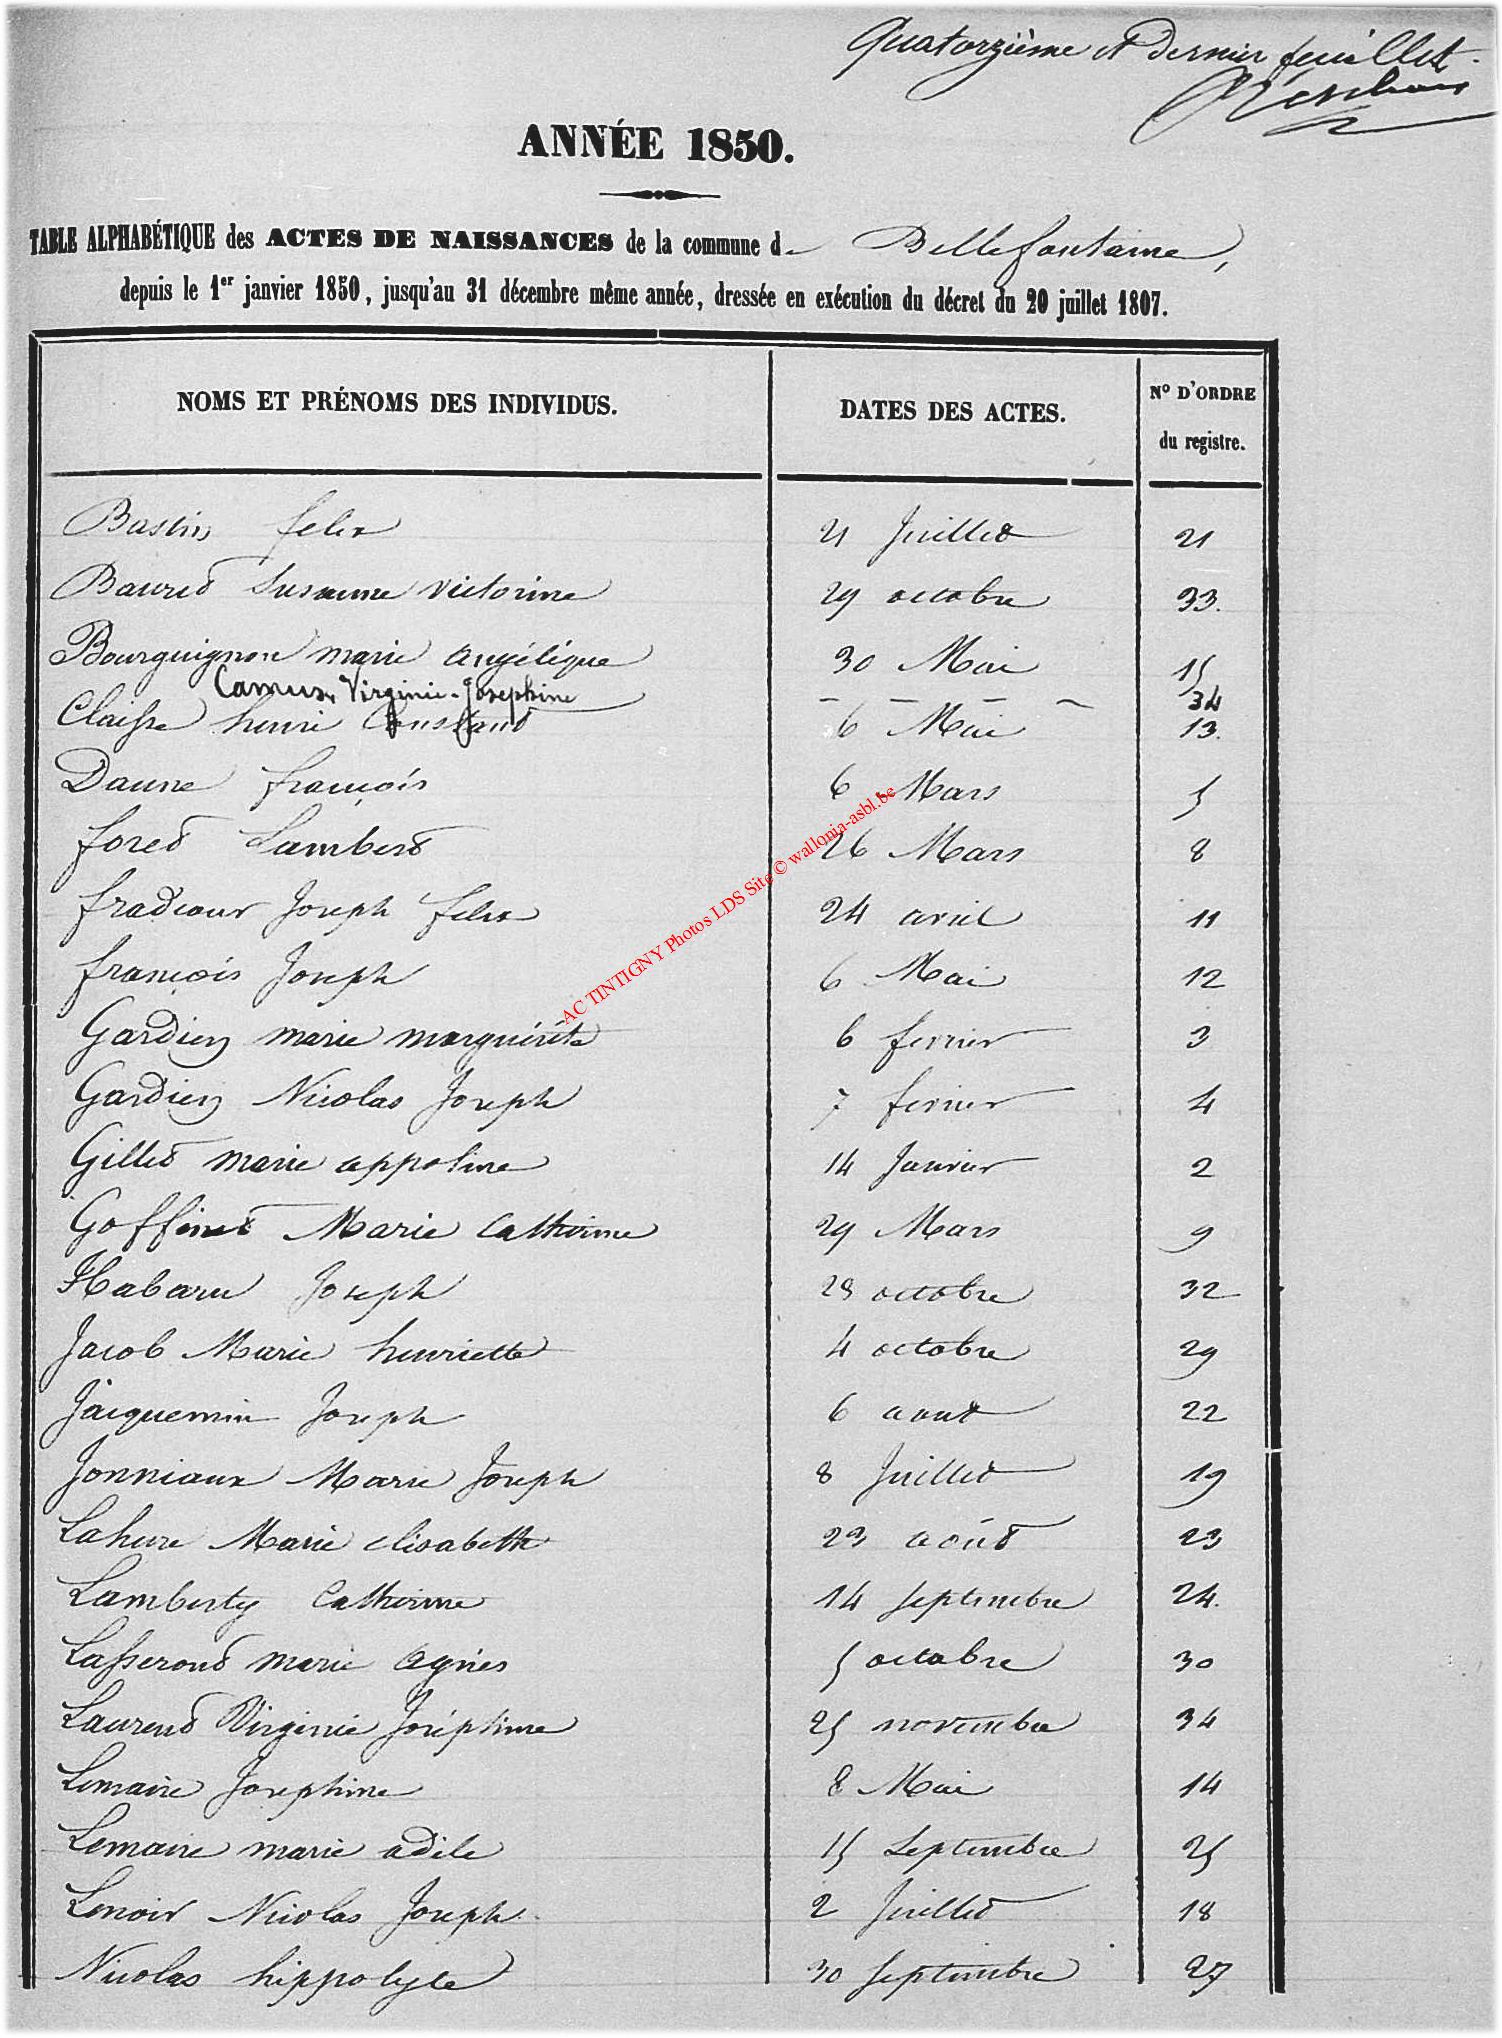 Quatorzième et Dernier feuillet.
ANNÉE 1850.
TABLE ALPHABÉTIQUE des ACTES DE NAISSANCES de la commune de Bellefontaine,
depuis le 1er janvier 1850, jusqu'au 31 décembre même année, dressée en exécution du décret du 20 juillet 1807.
NOMS ET PRÉNOMS DES INDIVIDUS. DATES DES ACTES. No D'ORDRE
du registre.
Bastin felix 21 Juillet 21
Bauret Susanne victorine 29 octobre 33.
Bourguignon marie angélique 30 Mai 15
Camus, Virginie-Josephine — — — — 34
Claisse henri Constant 6 Mai 13.
Daune françois 6 Mars 5
foret Lambert 26 Mars 8
fradcour Joseph felix 24 avril 11
françois Joseph 6 Mai 12
Gardien marie marguérite 6 fevrier 3
Gardien Nicolas Joseph 7 fevrier 4
Gillet marie appoline 14 Janvier 2
Goffinet Marie Catherine 29 Mars 9
Habaru Joseph 28 octobre 32
Jacob Marie henriette 4 octobre 29
Jacquemin Joseph 6 aout 22
Jonniaux Marie Joseph 8 Juillet 19
Lahure Marie elisabeth 23 août 23
Lamberty Catherine 14 septembre 24.
Lasseront marie agnès 5 octobre 30
Laurent Virginie Joséphine 25 novembre 34
Lemaire Josephine 8 Mai 14
Lemaire marie adile 15 Septembre 25
Lenoir Nicolas Joseph 2 Juillet 18
Nicolas hippolyte 30 septembre 27
AC TINTIGNY Photos LDS Site © wallonia-asbl.be